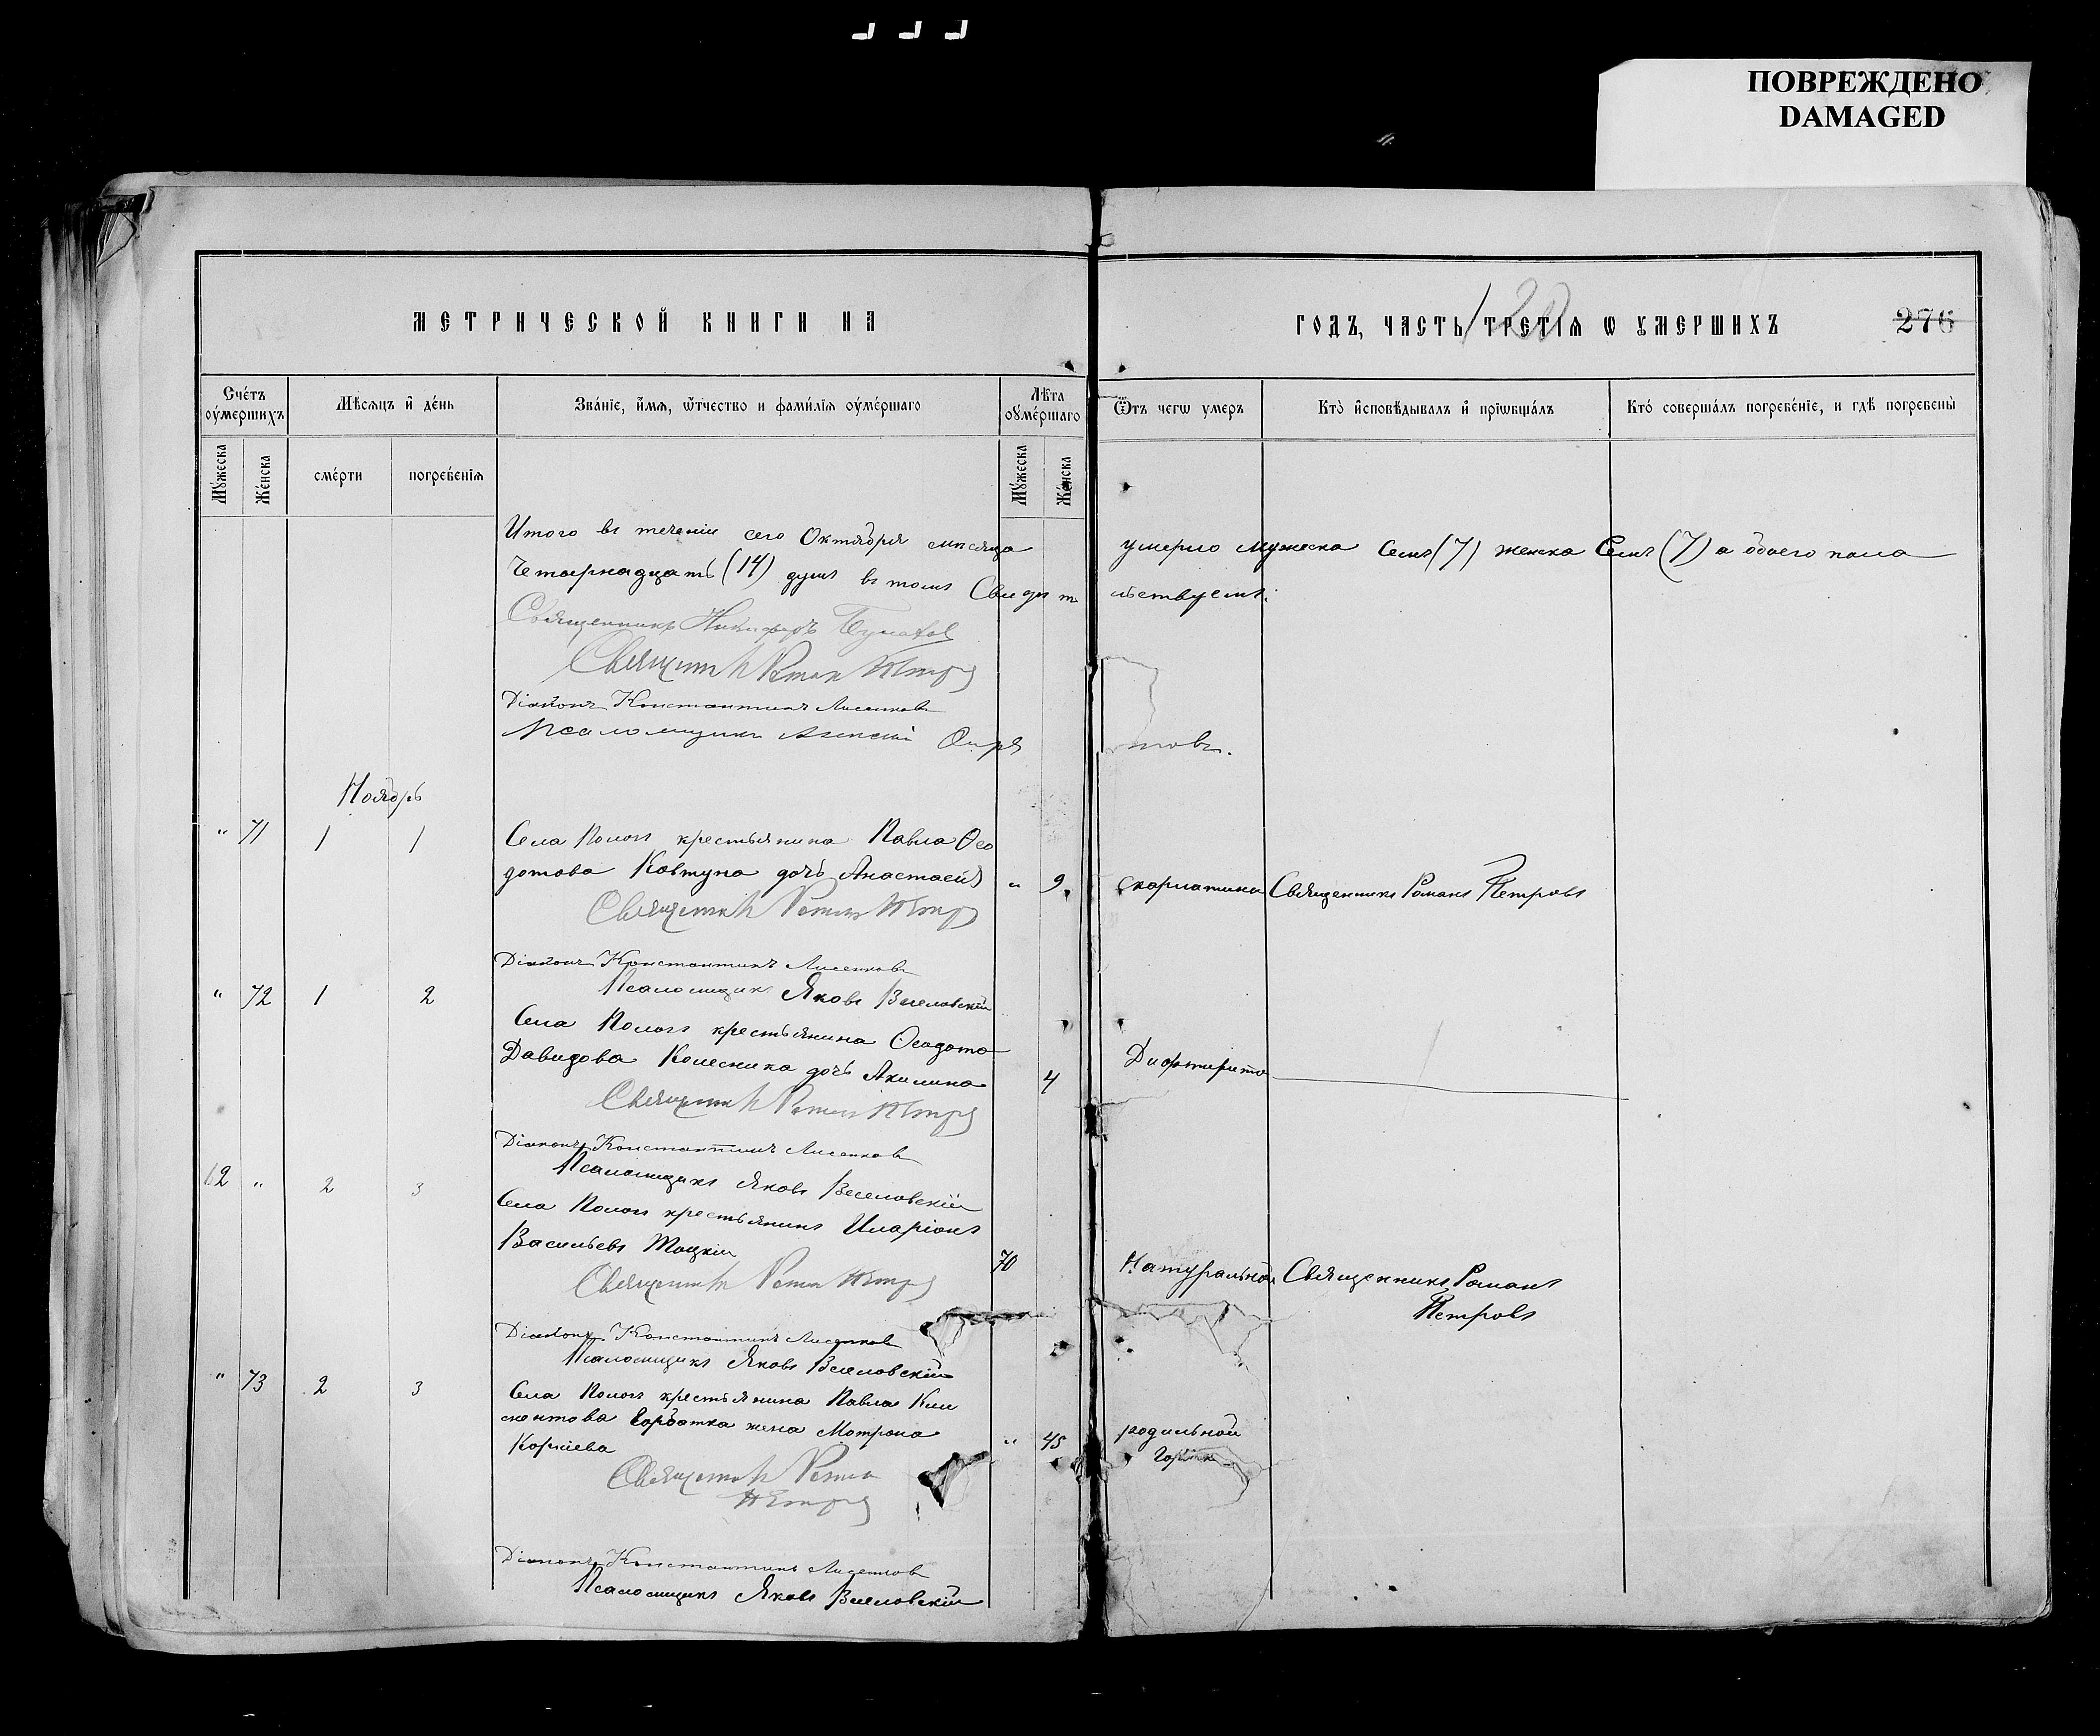 ПОВРЕЖДЕНО
DAMAGED
МЕТРИЧЕСКОЙ КНИГИ НА
ГОДЪ, ЧАСТЬ ТРЕТІѦ Ѡ ОУМЕРШИХЪ
276
Счетъ оумершихъ
Мѣсяцъ и день
Званіе, имя, отчество и фамилія оумершаго
Лѣта оумершаго
Ѿтъ чегѡ умеръ
Кто исповѣдывалъ и пріѡбщалъ
Кто совершалъ погребеніе, и гдѣ погребены
Мужеска
Женска
смерти
погребенія
Мужеска
Женска
Итого въ теченіи сего Октября мѣсяца умерло мужеска Семь (7) женска Семь (7) а обоего пола
Четырнадцать (14) душъ въ томъ Свидѣтельствуемъ:
Священникъ Никифоръ
Священникъ Романъ Петровъ
Діаконъ Константинъ Лисенковъ
Псаломщикъ
Ноябрь
" 71 1 1 Села Пологъ крестьянина Павла Ѳео
дотова Ковтуна дочь Анастасія " 9 скарлатина Священникъ Романъ Петровъ
Священникъ Романъ Петровъ
Діаконъ Константинъ Лисенковъ
Псаломщикъ Яковъ Веселовскій
" 72 1 2 Села Пологъ крестьянина Ѳеодота
Давидова Колесника дочь Акилина 4 Дифтерита
Священникъ Романъ Петровъ
Діаконъ Константинъ Лисенковъ
Псаломщикъ Яковъ Веселовскій
62 " 2 3 Села Пологъ крестьянинъ Иларіонъ
Васильевъ Тоцкій 70 Натуральной Священникъ Романъ
Петровъ
Священникъ Романъ Петровъ
Діаконъ Константинъ Лисенковъ
Псаломщикъ Яковъ Веселовскій
" 73 2 3 Села Пологъ крестьянина Павла Кли
ментова Горбатка жена Матрона
Корніева " 45 родильной
горячк
Священникъ Романъ
Петровъ
Діаконъ Константинъ Лисенковъ
Псаломщикъ Яковъ Веселовскій